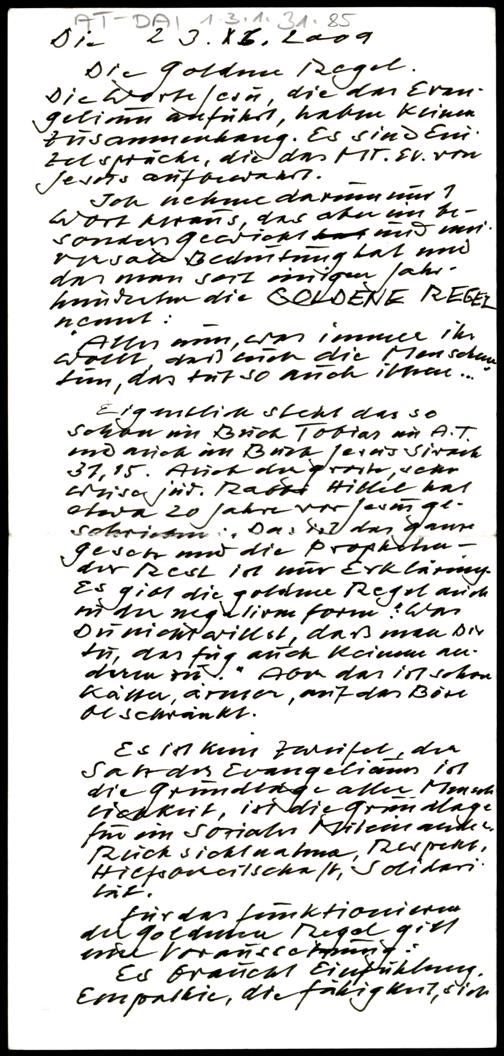 AT-DAI 1.3.1.31.85
Die 23.XI.2009
Die goldene Regel.
Die Worte Jesu, die das Evan-
gelium anführt, haben keinen
Zusammenhang. Es sind Ein-
zelsprüche, die das MT. Ev. von
Jesus aufbewahrt.
Ich nehme darum nur 1
Wort heraus, das aber ein be-
sonders Gewicht und uni-
versale Bedeutung hat und
das man seit einigen Jahr-
hunderten die GOLDENE REGEL
nennt:
"Alles nun, was immer ihr
wollt, daß euch die Menschen
tun, das tut so auch ihnen..."
Eigentlich steht das so
schon im Buch Tobias im A.T.
und auch im Buch Jesus Sirach
31,15. Auch der große, sehr
weise jüd. Rabbi Hillel hat
etwa 20 Jahre vor Jesus ge-
schrieben: Das ist das ganze
Gesetz und die Propheten -
der Rest ist nur Erklärung.
Es gibt die goldene Regel auch
in der negativen Form: "Was
Du nicht willst, daß man Dir
tu, das füg auch keinem an-
dern zu." Aber das ist schon
kälter, ärmer, auf das Böse
beschränkt.
Es ist kein Zweifel, der
Satz des Evangeliums ist
die Grundlage aller Mensch-
lichkeit, ist die Grundlage
für ein soziales Miteinander,
Rücksichtnahme, Respekt,
Hilfsbereitschaft, Solidari-
tät.
Für das Funktionieren
der goldenen Regel gilt
eine Voraussetzung:
Es braucht Einfühlung,
Empathie, die Fähigkeit, sich